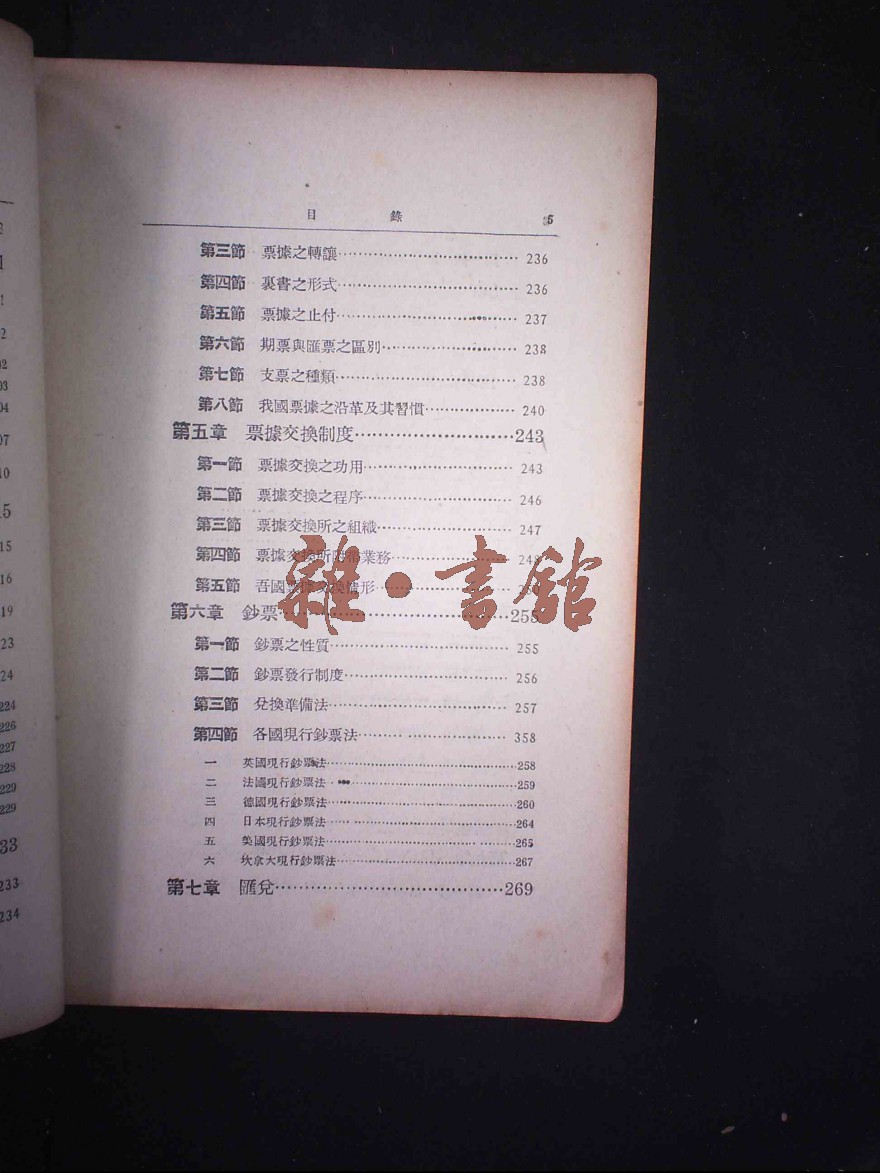 目錄 5
第三節 票據之轉讓 236
第四節 裏書之形式 236
第五節 票據之止付 237
第六節 期票與匯票之區別 238
第七節 支票之種類 238
第八節 我國票據之沿革及其習慣 240
第五章 票據交換制度 243
第一節 票據交換之功用 243
第二節 票據交換之程序 246
第三節 票據交換所之組織 247
第四節 票據交換所 業務 248
第五節 吾國票據交換情形
第六章 鈔票 255
第一節 鈔票之性質 255
第二節 鈔票發行制度 256
第三節 兌換準備法 257
第四節 各國現行鈔票法 358
一 英國現行鈔票法 258
二 法國現行鈔票法 259
三 德國現行鈔票法 260
四 日本現行鈔票法 264
五 美國現行鈔票法 265
六 坎拿大現行鈔票法 267
第七章 匯兌 269
雜·書館
15
16
19
23
24
224
226
227
228
229
229
33
233
234